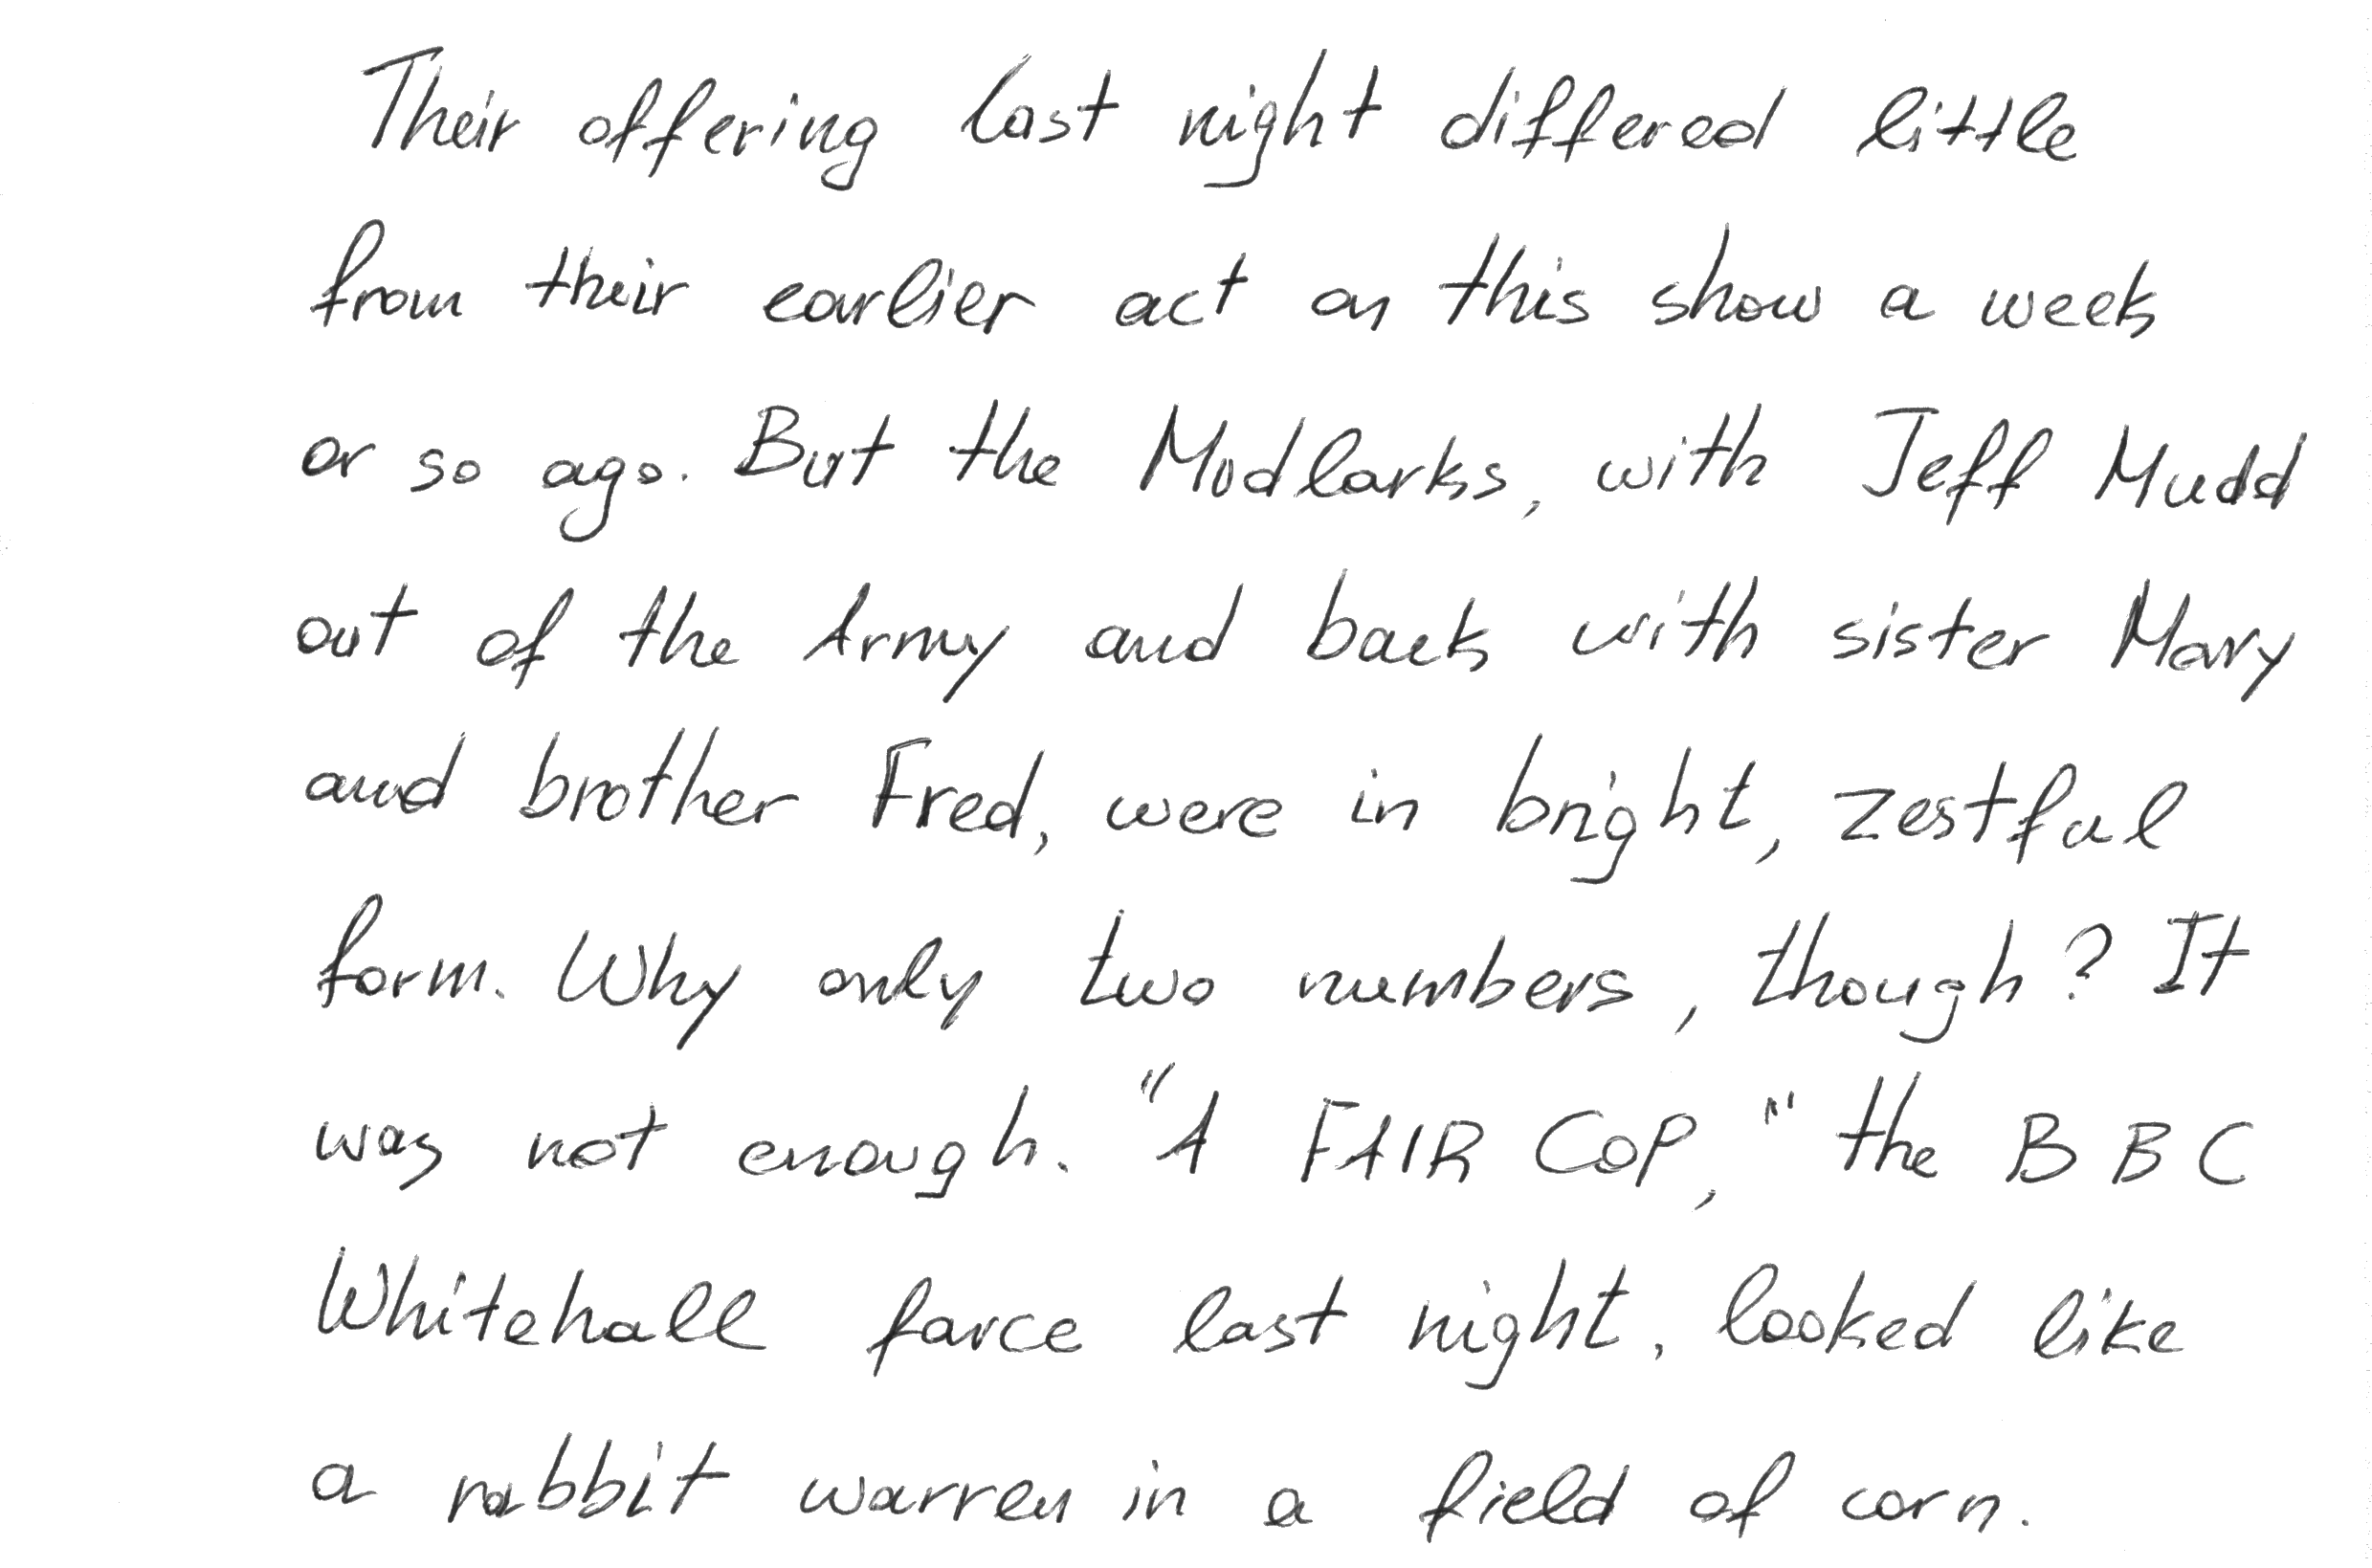 Their offering last night differed little
from their earlier act on this show a week
or so ago. But the Mudlarks, with Jeff Mudd
out of the Army and back with sister Mary
and brother Fred, were in bright, zestful
form. Why only two numbers, though? It
was not enough. "A FAIR COP," the B B C
Whitehall farce last night, looked like
a rabbit warren in a field of corn.